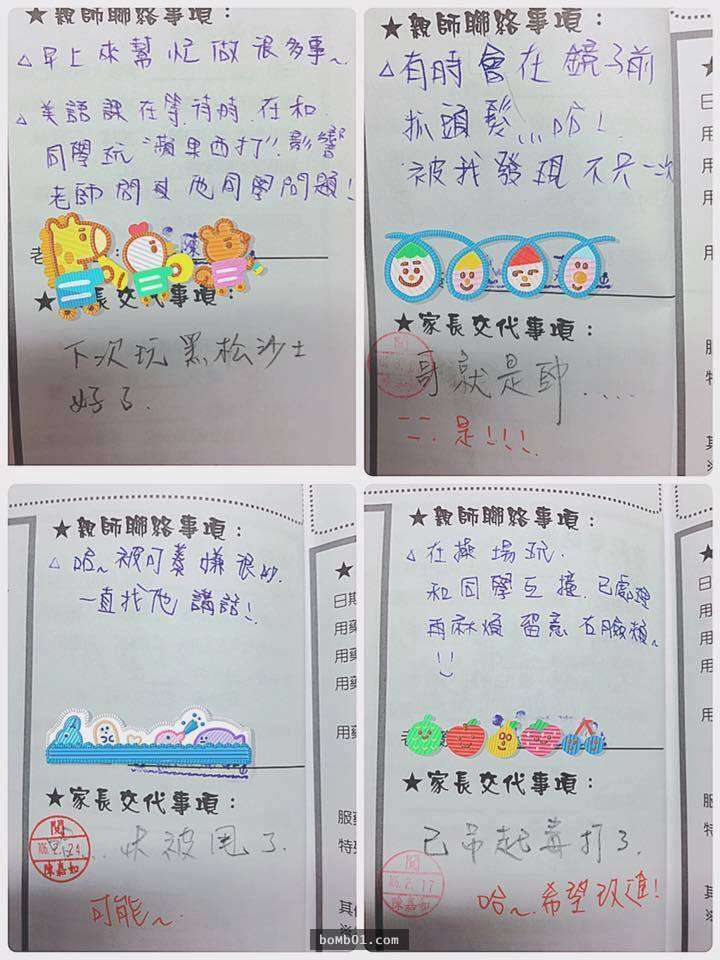 ★親師聯絡事項：
△早上來幫忙做很多事～
△美語課在等待時.在和
同學玩"蘋果西打"!影響
老師問其他同學問題!
老
★家長交代事項：
下次玩黑松沙士
好了.
★親師聯絡事項：
△有時會在鏡子前
抓頭髮...哈!
被我發現不只一次
★家長交代事項：
閱
哥就是帥....
是!!!
★親師聯絡事項：
△哈～被可蓁嫌很吵.
一直找他講話!
★家長交代事項：
閱
陳嘉如
..快被甩了.
可能～
★親師聯絡事項：
△在操場玩.
和同學互撞.已處理
再麻煩留意右臉頰～
!!
老
★家長交代事項：
閱
106.2.17
陳嘉如
已吊起毒打了.
哈～希望改進!
★
日期
用藥
用藥
用藥
用
服藥
特
其他
boMb01.com